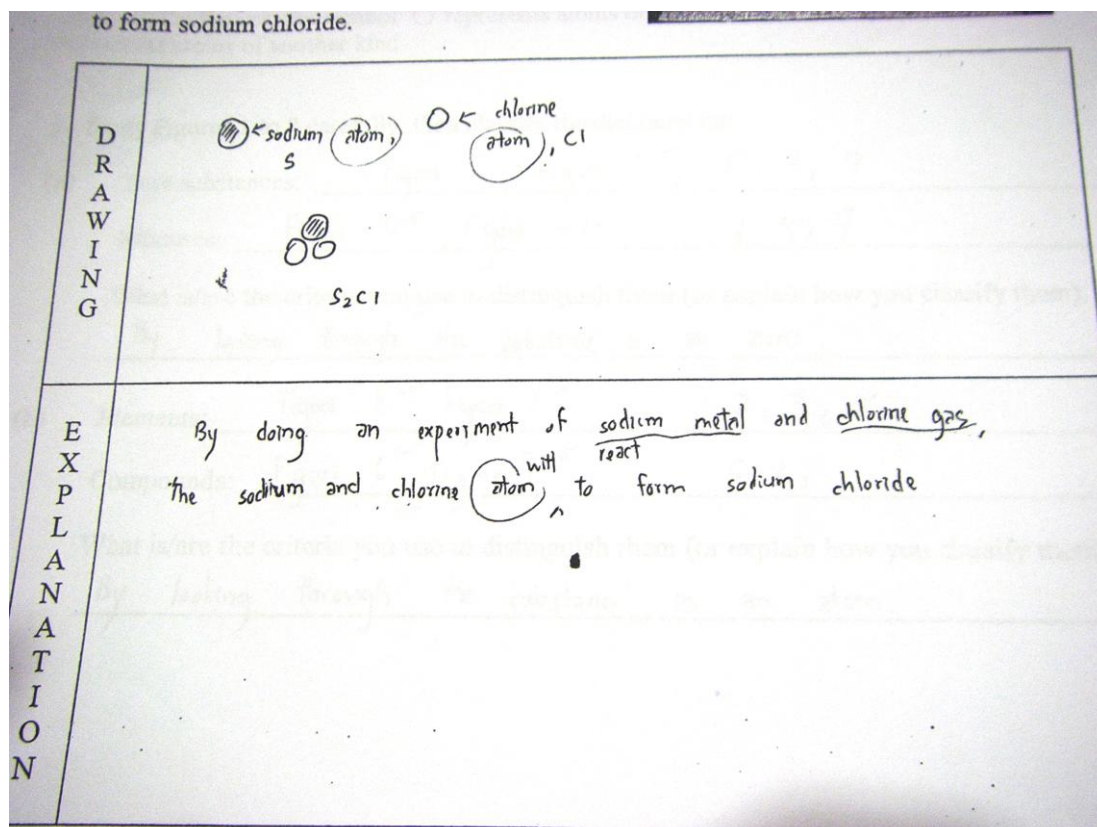 to form sodium chloride.
DRAWING
sodium atom,
S
chlorine
atom, Cl
S₂Cl
EXPLANATION
By doing an experiment of sodium metal and chlorine gas,
react
with
The sodium and chlorine atom to form sodium chloride